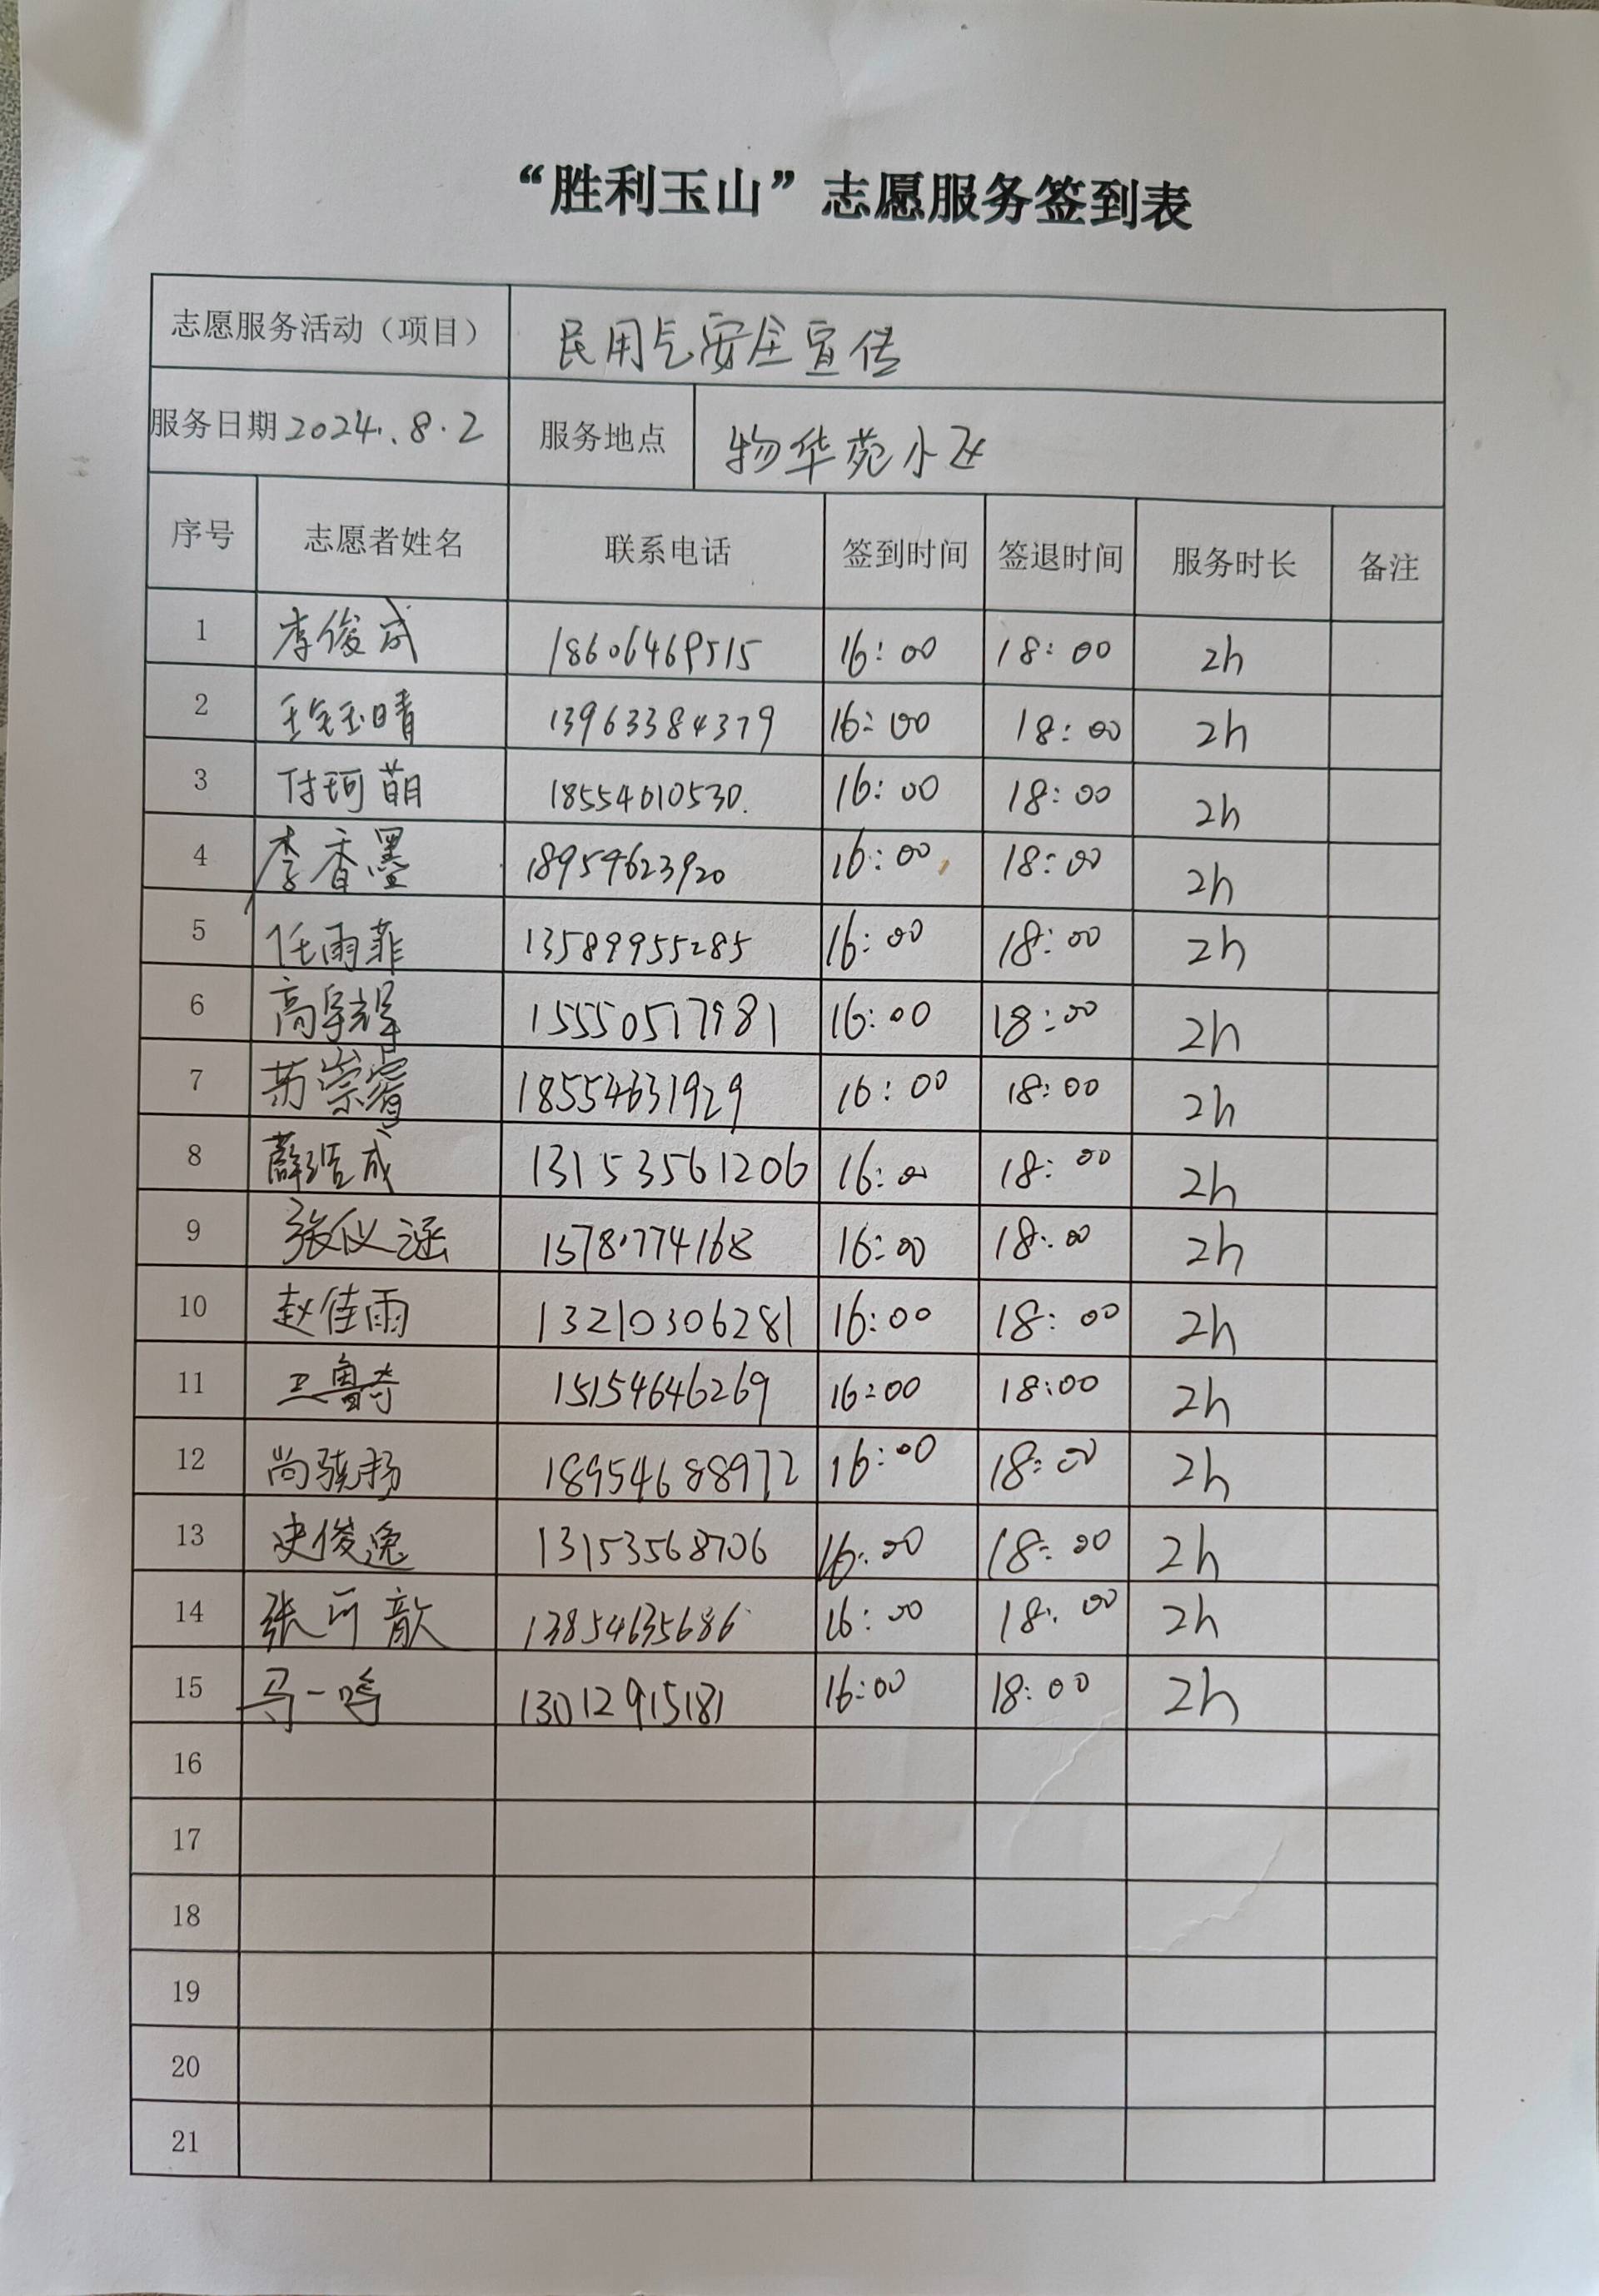 “胜利玉山”志愿服务签到表
志愿服务活动（项目） 民用气安全宣传
服务日期 2024.8.2 服务地点 物华苑小区
序号 志愿者姓名 联系电话 签到时间 签退时间 服务时长 备注
1 李俊成 18606469515 16:00 18:00 2h
2 13963384379 16:00 18:00 2h
3 付珂萌 18554610530. 16:00 18:00 2h
4 李香墨 18954623920 16:00 18:00 2h
5 任雨菲 13589955285 16:00 18:00 2h
6 高宇辉 15550517981 16:00 18:00 2h
7 崇睿 18554631929 16:00 18:00 2h
8 薛皓成 13153561206 16:00 18:00 2h
9 张仪涵 16:00 18:00 2h
10 赵佳雨 13210306281 16:00 18:00 2h
11 鲁奇 15154646269 16:00 18:00 2h
12 尚骁扬 18954688972 16:00 18:00 2h
13 史俊逸 13153568706 16:00 18:00 2h
14 张可歆 13854635686 16:00 18:00 2h
15 马一鸣 13012915181 16:00 18:00 2h
16
17
18
19
20
21